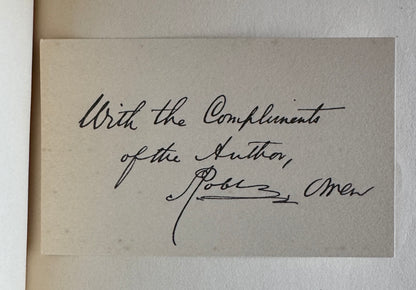 With the Compliments
of the Author,
Robt. Owen